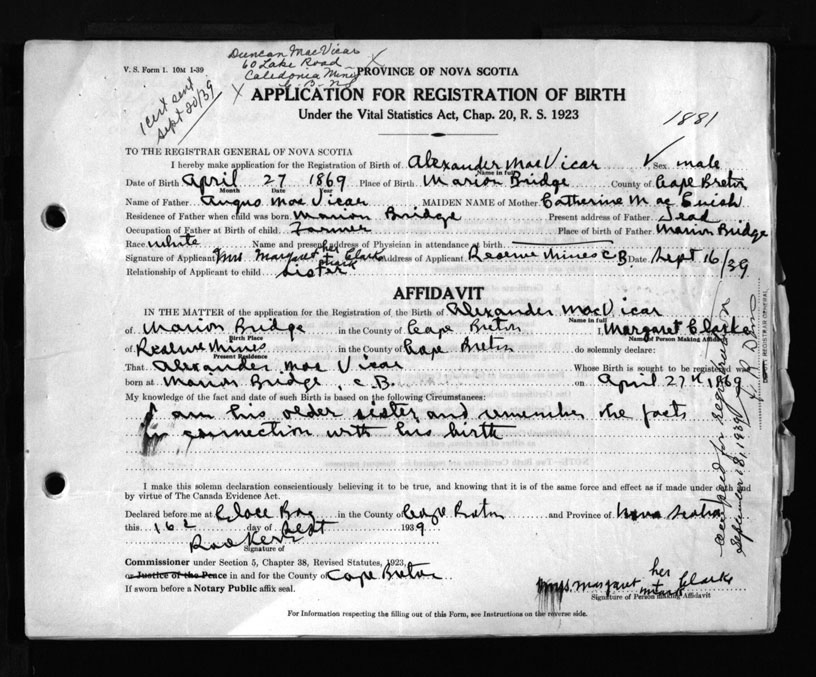 Duncan MacVicar
60 Lake Road
Caledonia Mines
V. S. Form 1. 10M 1-39
1 cert sent
Sept 20/39
PROVINCE OF NOVA SCOTIA
APPLICATION FOR REGISTRATION OF BIRTH
Under the Vital Statistics Act, Chap. 20, R. S. 1923
1881
TO THE REGISTRAR GENERAL OF NOVA SCOTIA
I hereby make application for the Registration of Birth of Alexander MacVicar Sex male
Name in full
Date of Birth April 27 1869 Place of Birth Marion Bridge County of Cape Breton
Month Date Year
Name of Father Angus MacVicar MAIDEN NAME of Mother Catherine Mac
Residence of Father when child was born Marion Bridge Present address of Father Dead
Occupation of Father at Birth of child Farmer Place of birth of Father Marion Bridge
Race white Name and present address of Physician in attendance at birth
Signature of Applicant Mrs. Margaret her + mark Clark Address of Applicant Reserve Mines C.B. Date Sept 16/39
Relationship of Applicant to child sister
AFFIDAVIT
IN THE MATTER of the application for Registration of the Birth of Alexander MacVicar
Name in full
of Marion Bridge in the County of Cape Breton I, Margaret Clarke
Birth Place Name of Person Making Affidavit
of Reserve Mines in the County of Cape Breton do solemnly declare:
Present Residence
That Alexander MacVicar Whose Birth is sought to be registered was
born at Marion Bridge, C.B. on April 27th 1869
My knowledge of the fact and date of such Birth is based on the following Circumstances:
I am his older sister and remember the facts
in connection with his birth
I make this solemn declaration conscientiously believing it to be true, and knowing that it is of the same force and effect as if made under oath and
by virtue of The Canada Evidence Act.
Declared before me at Glace Bay in the County of Cape Breton and Province of Nova Scotia
this 16 day of Sept 1939
Signature of
Commissioner under Section 5, Chapter 38, Revised Statutes, 1923,
or Justice of the Peace in and for the County of Cape Breton
If sworn before a Notary Public affix seal.
Mrs. Margaret her + mark Clarke
Signature of Person making Affidavit
For Information respecting the filling out of this Form, see Instructions on the reverse side.
Accepted for registration
September 18, 1939
DEPUTY REGISTRAR GENERAL